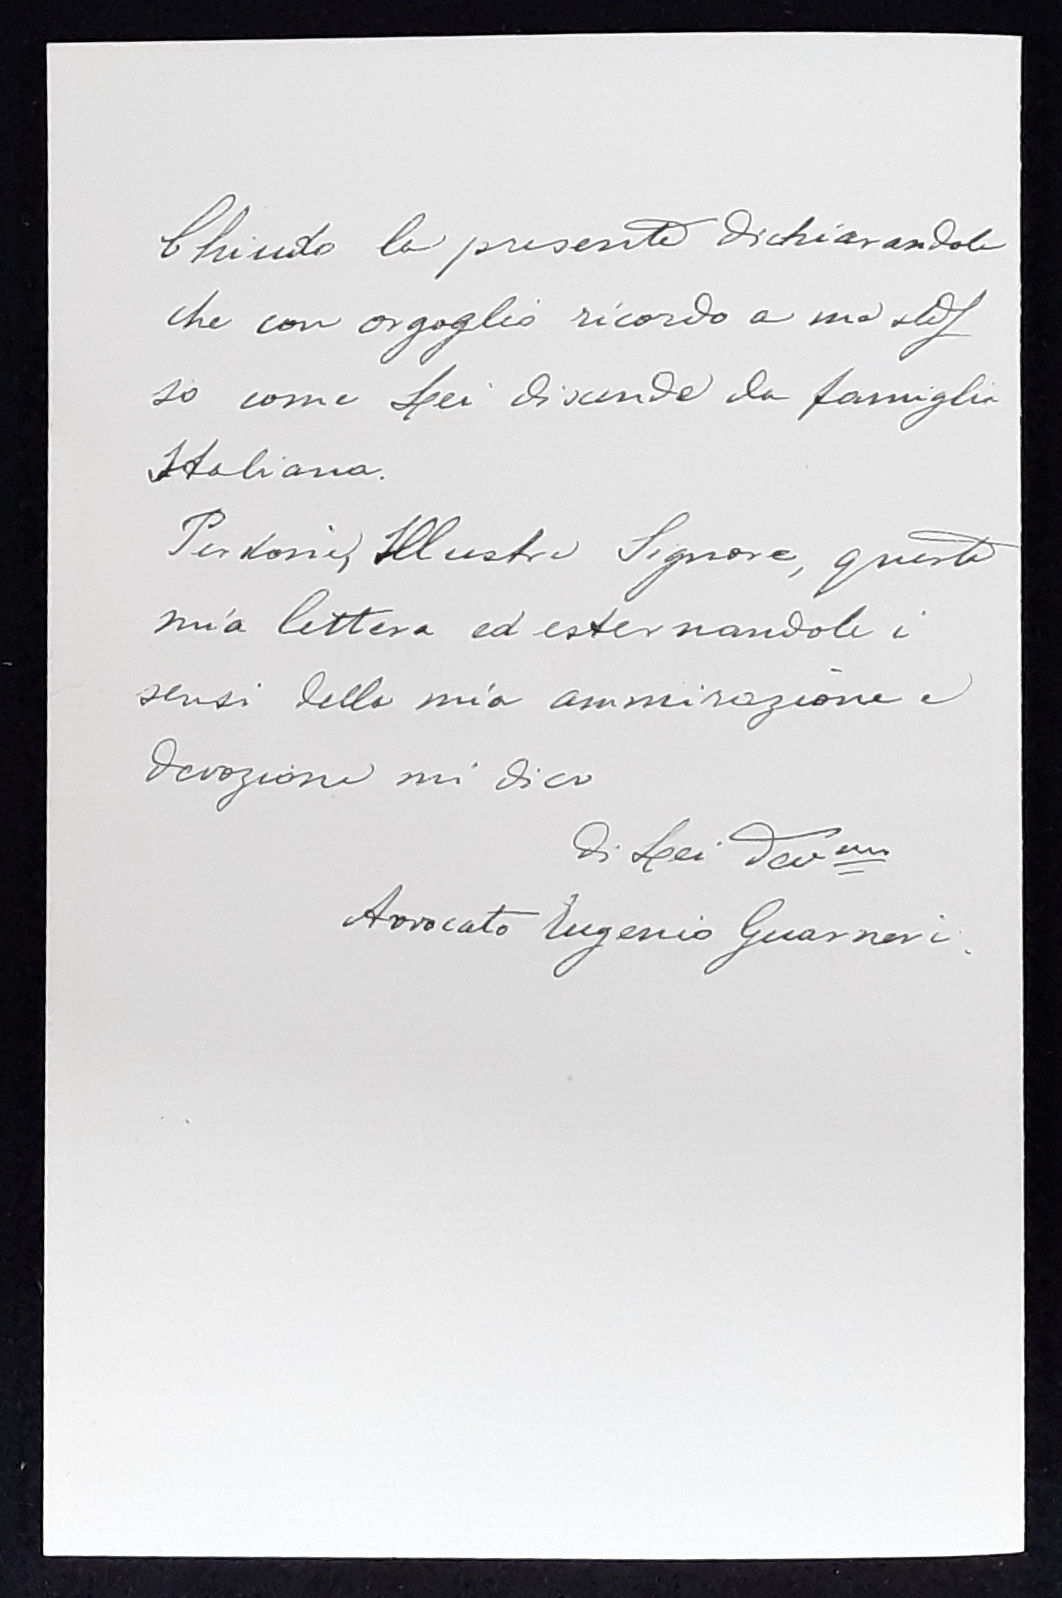 Chiudo la presente dichiarandole
che con orgoglio ricordo a me stes
so come Lei discende da famiglia
Italiana.
Perdoni, Illustre Signore, questa
mia lettera ed esternandole i
sensi della mia ammirazione e
devozione mi dico
di Lei Dev.mo
Avvocato Eugenio Guarneri.